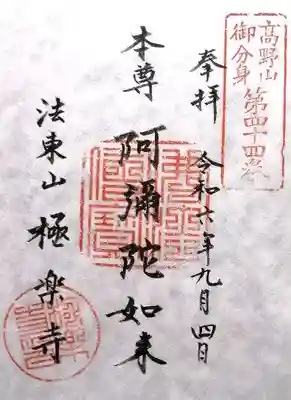 高野山
御分身
第四十四番
奉拝
令和六年九月四日
本尊 阿彌陀如来
法東山 極楽寺